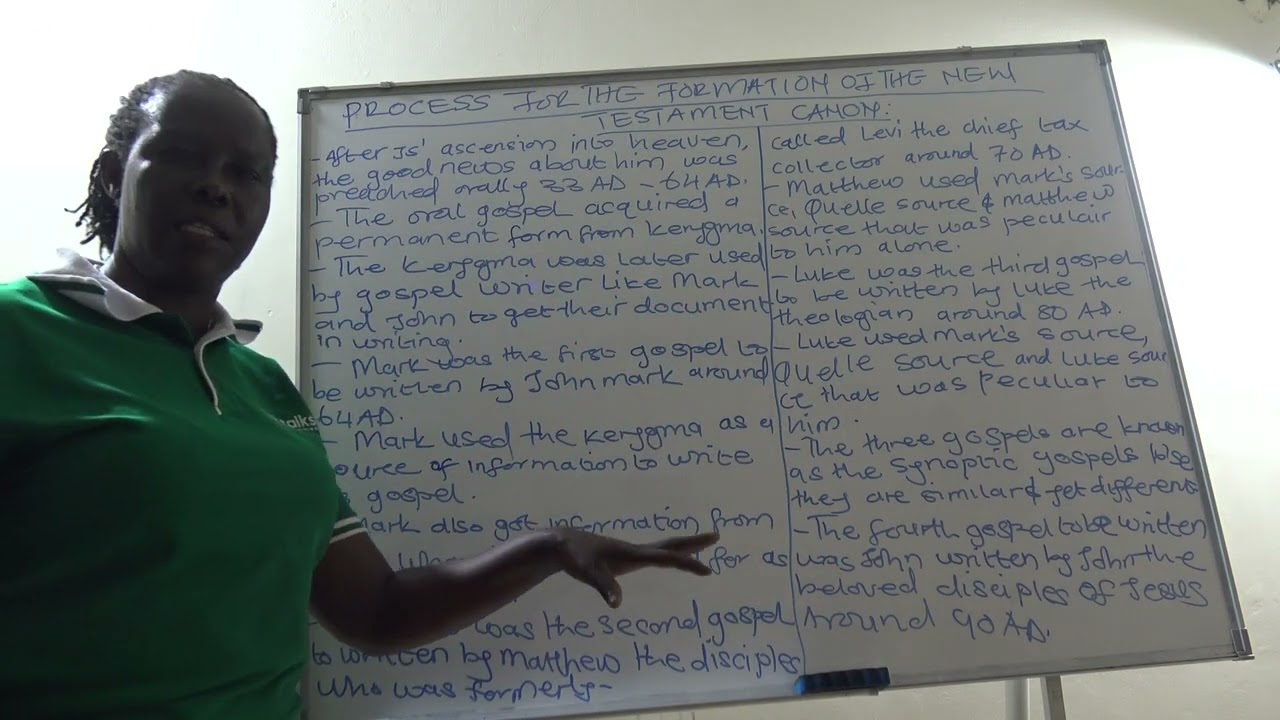 PROCESS FOR THE FORMATION OF THE NEW
TESTAMENT CANON:
- After Js' ascension into heaven,
the good news about him was
preached orally 33 AD - 64 AD.
- The oral gospel acquired a
permanent form from Kerygma.
- The Kerygma was later used
by gospel writer like Mark
and John to get their document
in writing.
- Mark was the first gospel to
be written by John mark around
64 AD.
- Mark used the kerygma as a
source of information to write
gospel.
Mark also got information from
for as
was the second gospel
to written by matthew the disciples
who was formerly-
called Levi the chief tax
collector around 70 AD.
- Matthew used mark's sour-
ce, Quelle source & matthew
source that was peculair
to him alone.
- Luke was the third gospel
to be written by luke the
theologian around 80 AD.
- Luke used Mark's source,
Quelle source and Luke sour
ce that was peculiar to
him.
- The three gospels are known
as the synoptic gospels b'se
they are similar & yet different
- The fourth gospel to be written
was John written by John the
beloved disciples of Jesus
Around 90 AD.
alks